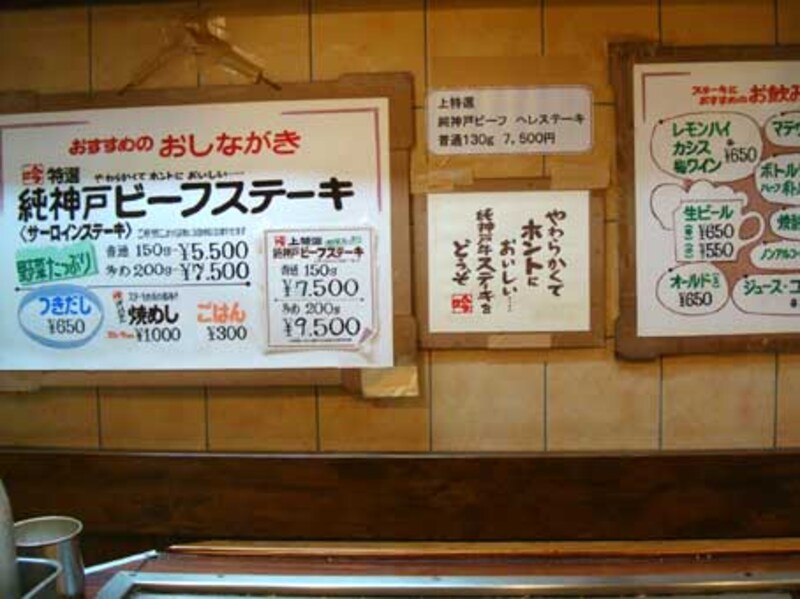 おすすめの おしながき
特選 やわらかくて ホントに おいしい…
純神戸ビーフステーキ
〈サーロインステーキ〉
野菜たっぷり
普通 150g─¥5.500
多め 200g─¥7.500
つきだし
¥650
焼めし
¥1.000
ごはん
¥300
上特選
純神戸ビーフステーキ
普通 150g
¥7.500
多め 200g
¥9.500
上特選
純神戸ビーフ ヘレステーキ
普通130g 7,500円
やわらかくて
ホントに
おいしい…
どうぞ
ステーキに
おすすめの お飲み
レモンハイ
カシス
梅ワイン
¥650
生ビール
¥650
¥550
オールド
¥650
マテウ
ボトル
ハーフボトル
焼酎
ノンアルコー
ジュース・コ